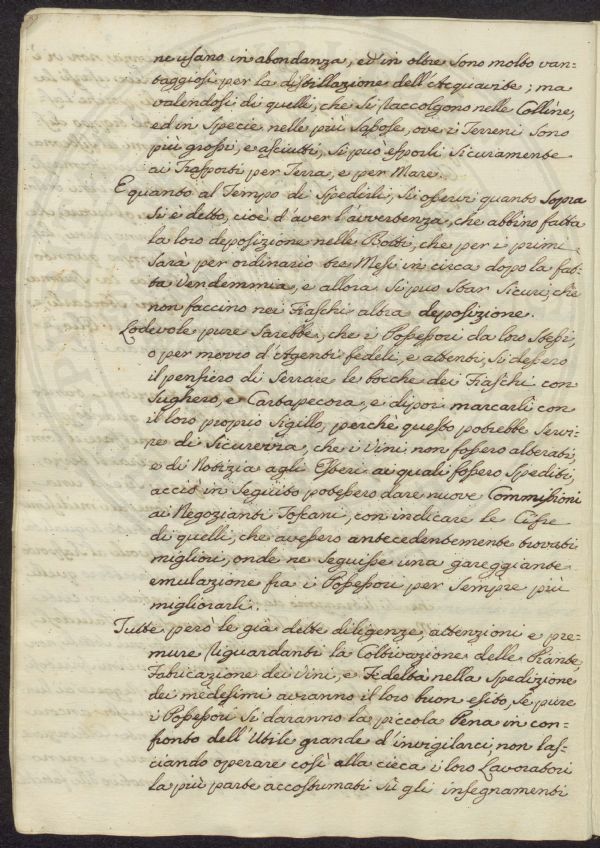 ne usano in abondanza, ed in oltre sono molto van=
taggiosi per la distillazione dell'Acquavite; ma
valendosi di quelli, che si raccolgono nelle Colline,
ed in specie nelle più sassose, ove i Terreni sono
più grossi, e asciutti, si può esporli sicuramente
ai Trasporti per Terra, e per Mare.
E quanto al Tempo di spedirli, si osservi quanto sopra
si è detto, cioè d'aver l'avvertenza, che abbino fatta
la loro deposizione nelle Botti, che per i primi
sarà per ordinario tre Mesi in circa dopo la fat=
ta Vendemmia, e allora si può star sicuri, che
non faccino nei Fiaschi altra deposizione.
Lodevole pure sarebbe, che i Possessori da loro stessi,
o per mezzo d'Agenti fedeli, e attenti, si dessero
il pensiero di serrare le bocche dei Fiaschi con
sughero, e Cartapecora, e dipoi marcarli con
il loro proprio Sigillo, perchè questo potrebbe servi=
re di sicurezza, che i Vini non fossero alterati,
e di Notizia agli Esteri ai quali fossero spediti,
acciò in seguito potessero dare nuove Commissioni
ai Negozianti Toscani, con indicare le Cifre
di quelli, che avessero antecedentemente trovati
migliori, onde ne seguisse una gareggiante
emulazione fra i Possessori per sempre più
migliorarli.
Tutte però le già dette diligenze, attenzioni e pre=
mure riguardanti la Coltivazione delle Piante,
Fabricazione dei Vini, e Fedeltà nella Spedizione
dei medesimi avranno il loro buon esito, se pure
i Possessori si daranno la piccola Pena in con=
fronto dell'Utile grande d'invigilarci, non las=
ciando operare così alla cieca i loro Lavoratori
la più parte accostumati sù gli insegnamenti